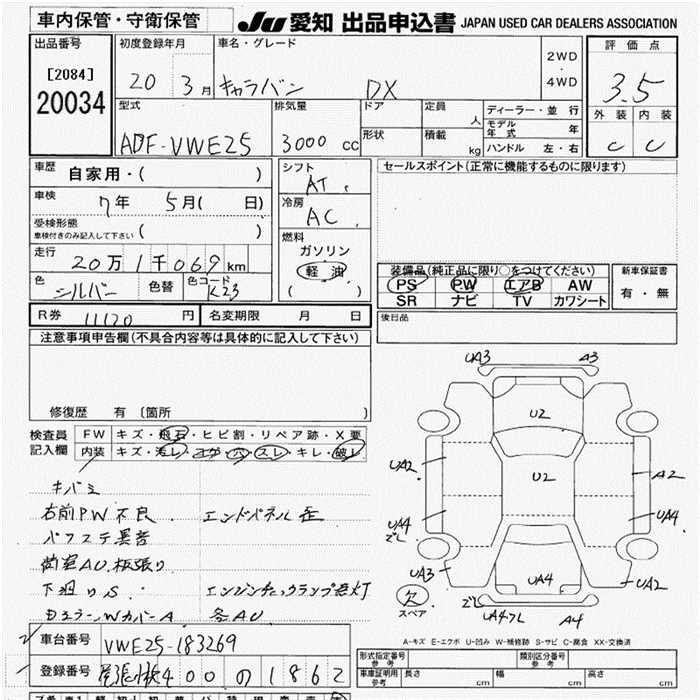 車内保管・守衛保管
JU 愛知 出品申込書 JAPAN USED CAR DEALERS ASSOCIATION
出品番号
[2084]
20034
初度登録年月
20 3月
車名・グレード
キャラバン DX
2WD
・
4WD
評価点
3.5
外装 内装
C C
型式
ADF-VWE25
排気量
3000 cc
ドア
形状
定員
人
積載
kg
ディーラー・並行
モデル年式 年
ハンドル 左・右
車歴
自家用・( )
車検
7年 5月( 日)
受検形態
車検付きのみ記入して下さい ( )
走行
20万1千069km
色
シルバー
色替
色コード
K23
シフト
AT
冷房
AC
燃料
ガソリン
軽油
( )
セールスポイント(正常に機能するものに限ります)
装備品(純正品に限り○をつけてください)
PS PW エアB AW
SR ナビ TV カワシート
新車保証書
有・無
R券 11120円
名変期限 月 日
後日品
注意事項申告欄(不具合内容等は具体的に記入して下さい)
修復歴 有 〔箇所 〕
検査員
記入欄
FW キズ・飛石・ヒビ割・リペア跡・X要
内装 キズ・汚レ・コゲ・穴・スレ・キレ・破レ
キバミ
右前PW不良 エンドパネル歪
パワステ異音
荷室AU、板張り
下廻りS エンジンチェックランプ点灯
Dミラー・WカバーA 各AU
UA3 A3
U2
UA2 U2 A2
UA4 ズレ UA4
UA3 UA4 UA2
欠
スペア
ズレ UA4フレ A4
A-キズ E-エクボ U-凹み W-補修跡 S-サビ C-腐食 XX-交換済
車台番号 VWE25-183269
登録番号 尾張小牧400の1862
形式指定番号
参考
類別区分番号
参考
車庫証明用
参考
長さ cm 幅 cm 高さ cm